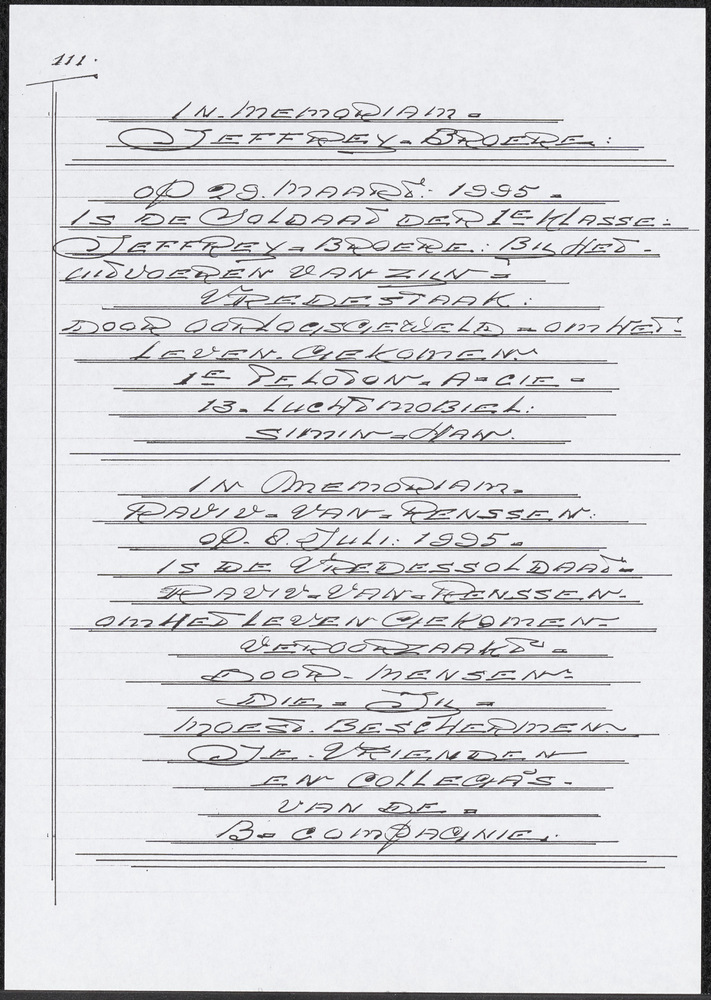 111.
IN. MEMORIAM. =
JEFFREY = BROERE :
OP 29. MAART: 1995 =
IS DE SOLDAAT DER 1E KLASSE =
JEFFREY = BROERE : BIJ HET =
UITVOEREN VAN ZIJN =
VREDESTAAK :
DOOR OORLOGSGEWELD = OM HET =
LEVEN. GEKOMEN.
1E PELOTON. A = CIE =
13. LUCHTMOBIEL :
SIMIN = HAN.
IN MEMORIAM.
RAVIV = VAN = RENSSEN :
OP. 8. JULI : 1995 =
IS DE VREDESSOLDAAT =
RAVIV = VAN = RENSSEN.
OM HET LEVEN GEKOMEN =
VEROORZAAKT =
DOOR = MENSEN =
DIE = JIJ =
MOEST. BESCHERMEN
JE. VRIENDEN
EN COLLEGA'S =
VAN DE =
B = COMPAGNIE.